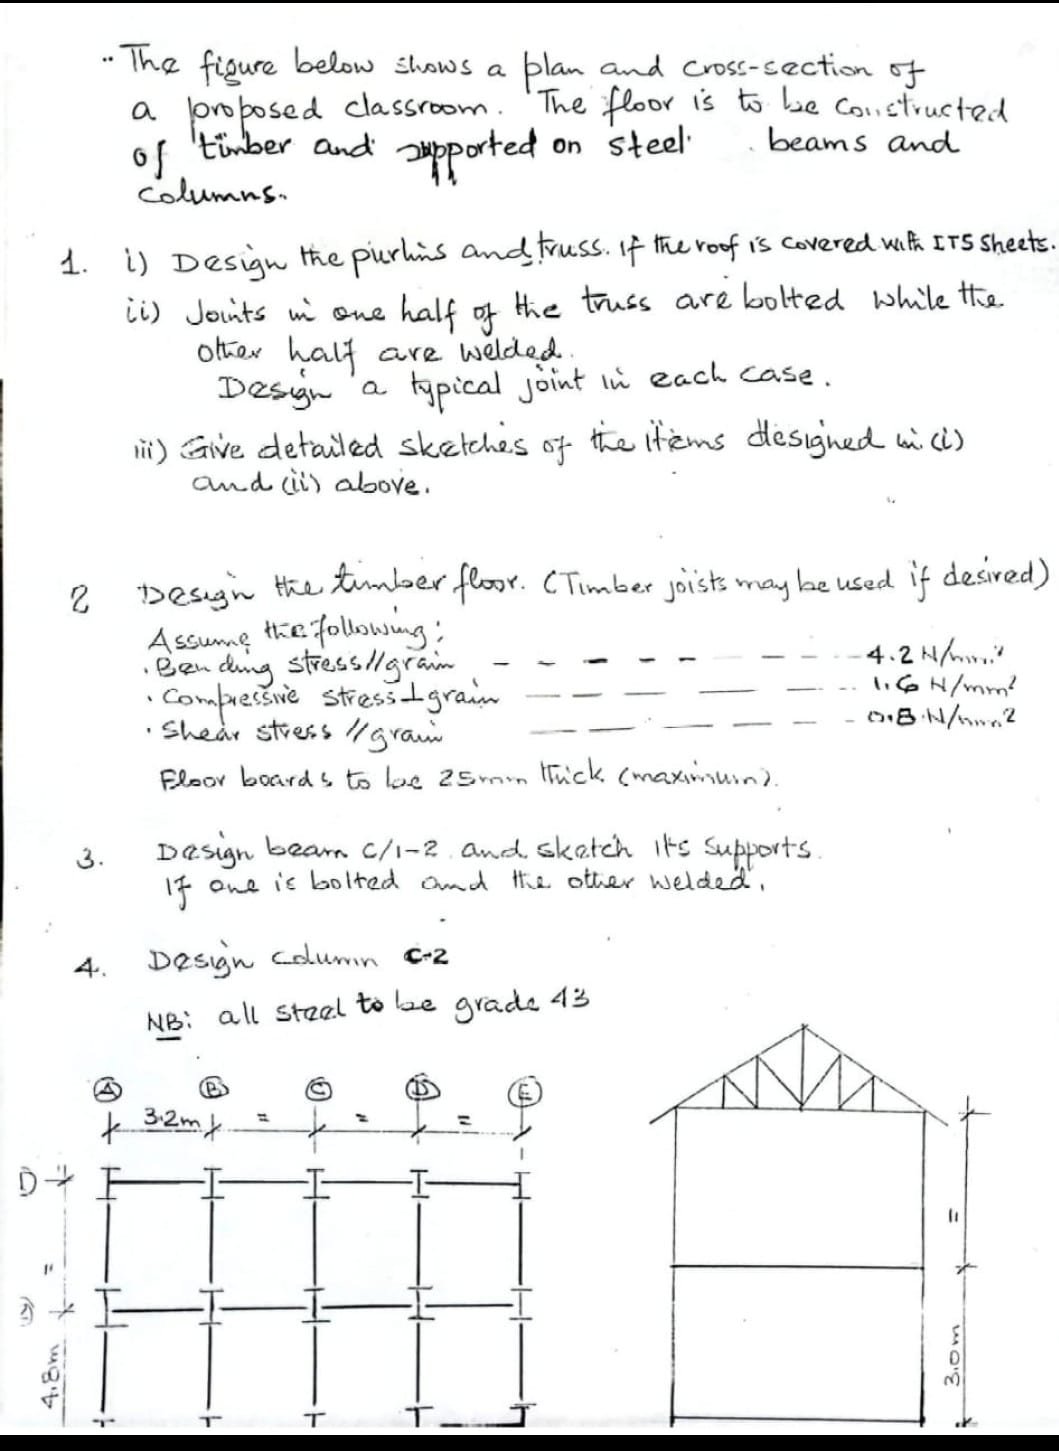 " The figure below shows a plan and cross-section of
a proposed classroom. The floor is to be constructed
of timber and supported on steel beams and
columns.
1. i) Design the purlins and truss. if the roof is covered with IT5 sheets.
ii) Joints in one half of the truss are bolted while the
other half are welded.
Design a typical joint in each case.
iii) Give detailed sketches of the items designed in (i)
and (ii) above.
2 Design the timber floor. (Timber joists may be used if desired)
Assume the following:
. Bending stress // grain - - - - - - - - 4.2 N/mm²
. Compressive stress ⊥ grain - - - - - - 1.6 N/mm²
. Shear stress // grain - - - - - - 0.8 N/mm²
Floor boards to be 25mm thick (maximum).
3. Design beam C/1-2 and sketch its supports.
If one is bolted and the other welded.
4. Design column C-2
NB: all steel to be grade 43
A B C D E
3.2m = = =
=
4.8m
=
3.0m